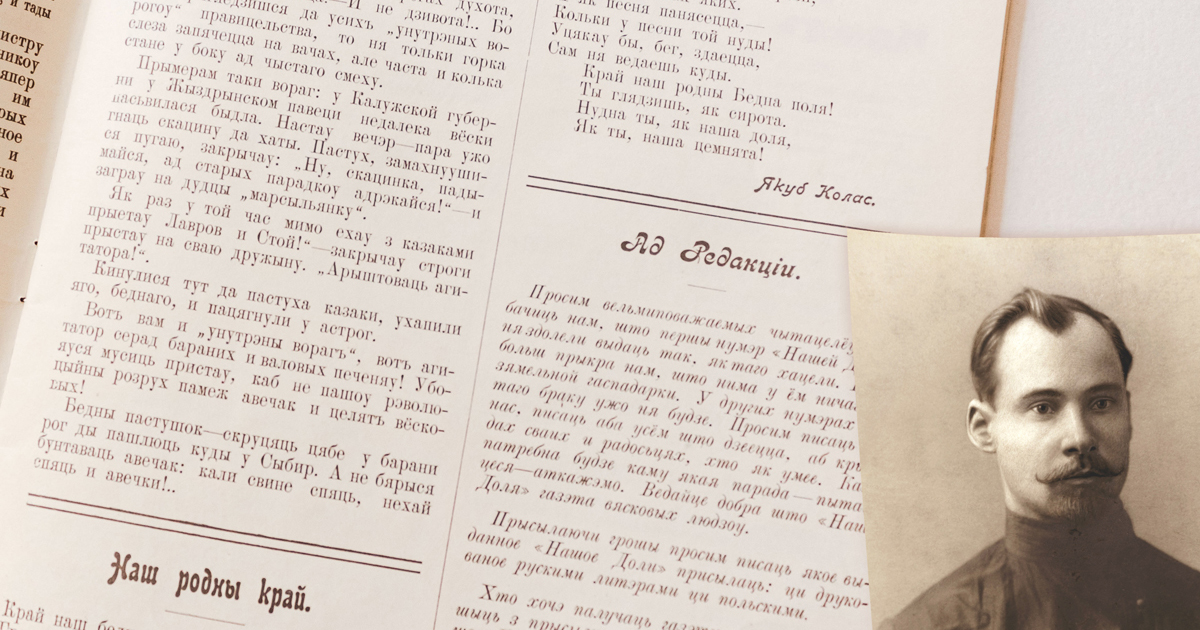 у и тады
истру
никоу
япер
им
рых
ное
и
на
х
и
духота,
дзейшся да усихъ „унутрэных во-
рогоу" правицельства, то ня тольки горка
слеза запячецца на вачах, але часта и колька
стане у боку ад чыстаго смеху.
Прымерам таки вораг: у Калужской губер-
ни у Жыздрынском павеци недалека вёски
насьвилася быдла. Настау вечэр—пара ужо
гнаць скацину да хаты. Пастух, замахнууши-
ся пугаю, закрычау: „Ну, скацинка, пады-
майся, ад старых парадкоу адрэкайся!"—и
заграу на дудцы „марсыльянку".
Як раз у той час мимо ехау з казаками
прыстау Лавров и Стой!"—закрычау строги
прыстау на сваю дружыну. „Арыштоваць аги-
татора!".
Кинулися тут да пастуха казаки, ухапили
яго, беднаго, и пацягнули у астрог.
Вотъ вам и „унутрэны ворагъ", вотъ аги-
татор серад бараних и валовых печеняу! Убо-
яуся мусиць пристау, каб не пашоу рэволю-
цыйны розрух памеж авечак и целятъ вёско-
вых!
Бедны паступок—скруцяць цябе у барани
рог ды пашлюць куды у Сыбир. А не бярыся
бунтаваць авечак: кали свине спяць, нехай
спяць и авечки!..
Наш родны край.
Край наш
як песня панясецца,—
Кольки у песни той нуды!
Уцякау бы, бег, здаецца,
Сам ня ведаеш куды.
Край наш родны Бедна поля!
Ты глядзишь, як сирота,
Нудна ты, як наша доля,
Як ты, наша цемнята!
Якуб Колас.
Ад Редакціи.
Просим вельмиповажаемых чытацелёу
бачиць нам, што першы нумэр «Нашей
ня здолели выдаць так, як таго хацели.
больш прыкра нам, што нима у ём нича
зямельной гаспадарки. У других нумэрах
таго браку ужо ня будзе. Просим писаць
нас, писаць аба усём што дзеецца, аб кры
дах сваих и радосьцях, хто як умее. Ка
патребна будзе каму якая парада—пыта
цеся—аткажэмо. Ведайце добра што «Наш
Доля» газэта вясковых людзоу.
Прысылаючи грошы просим писаць якое вы-
данное «Нашое Доли» присылаць: ци друко-
ваное рускими литэрами ци польскими.
Хто хочэ палучаць газэт
шыць з прысы